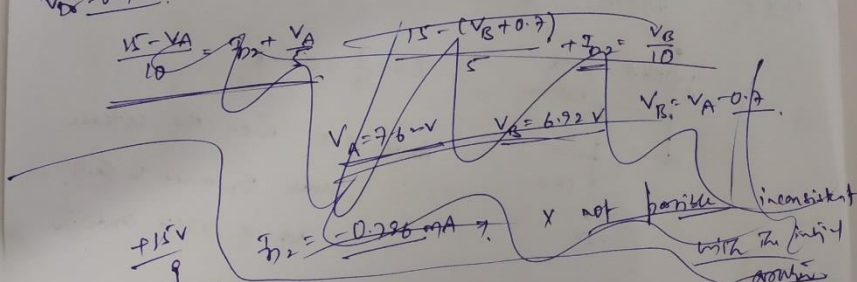 (15 - V_A)/10 = I_D2 + V_A/5
(15 - (V_B + 0.7))/5 + I_D2 = V_B/10
V_B = V_A - 0.7
V_A = 7.6 V V_B = 6.92 V
I_D2 = -0.286 mA ⇒ X not possible inconsistent
with the
+15V